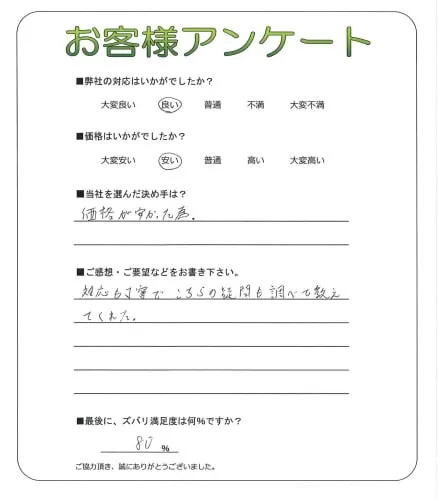 お客様アンケート
■弊社の対応はいかがでしたか？
大変良い 良い 普通 不満 大変不満
■価格はいかがでしたか？
大変安い 安い 普通 高い 大変高い
■当社を選んだ決め手は？
価格が安かった為。
■ご感想・ご要望などをお書き下さい。
対応も丁寧で こちらの疑問も調べて教え
てくれた。
■最後に、ズバリ満足度は何％ですか？
80 %
ご協力頂き、誠にありがとうございました。